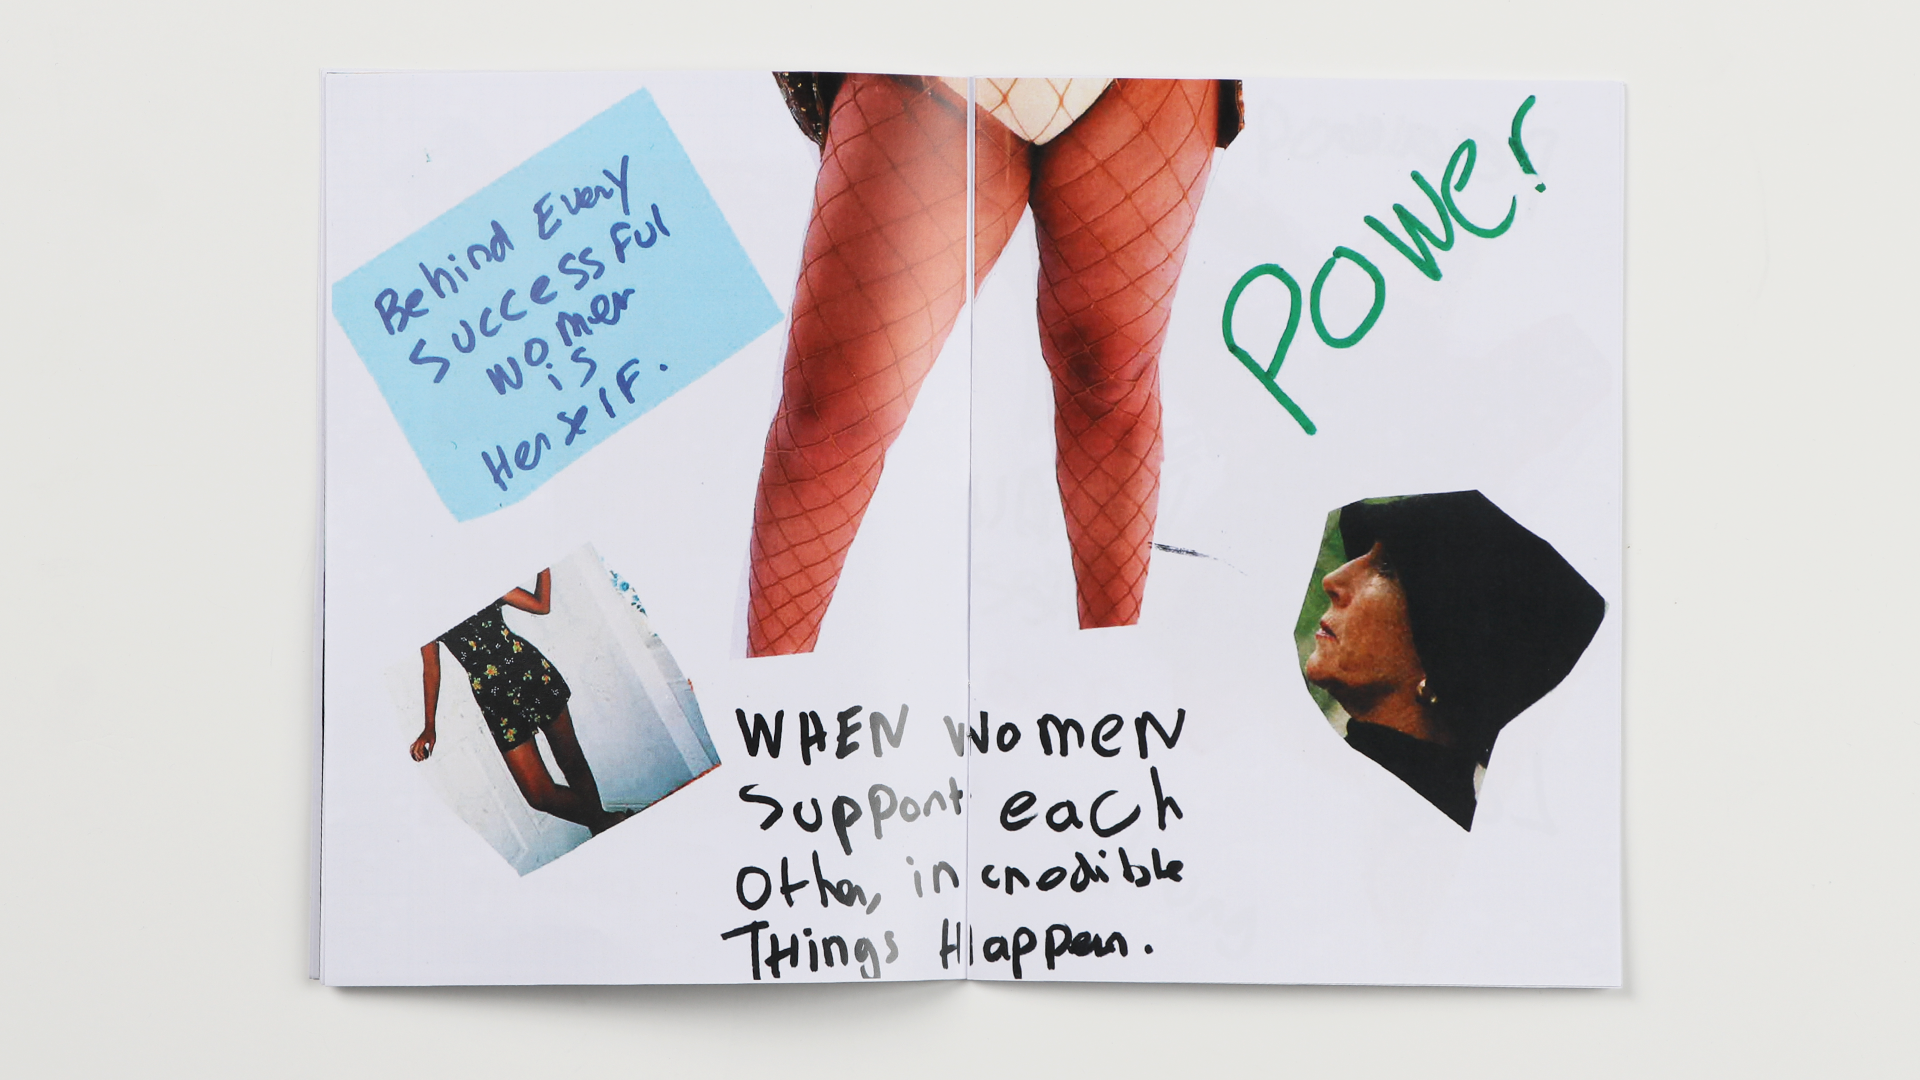 Behind Every
Successful
Women
is
Herself.
Power
WHEN Women
Support each
Other, incredible
Things Happen.